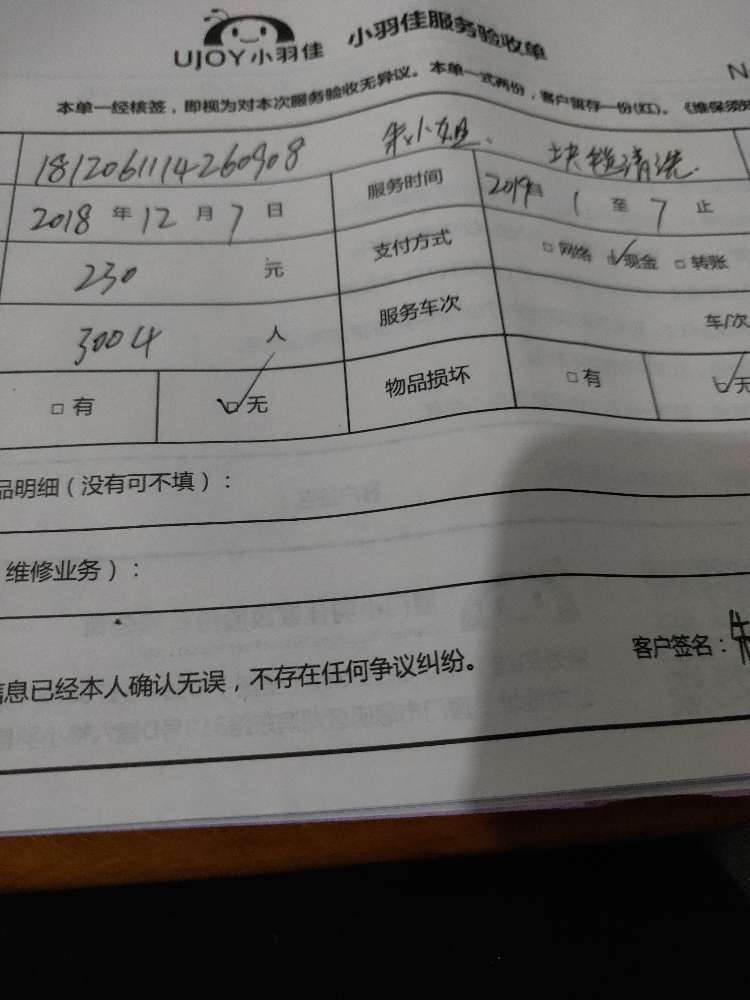 UJOY小羽佳 小羽佳服务验收单
N
本单一经核签，即视为对本次服务验收无异议。本单一式两份，客户留存一份(红)。《维保须知
1812061114260908 朱小姐. 清洗.
2018 年 12 月 7 日 服务时间 1 至 7 止
230 元 支付方式 □网络 ☑现金 □转账
3004 人 服务车次 车/次
□有 ☑无 物品损坏 □有 ☑无
品明细（没有可不填）：
维修业务）：
信息已经本人确认无误，不存在任何争议纠纷。 客户签名：朱